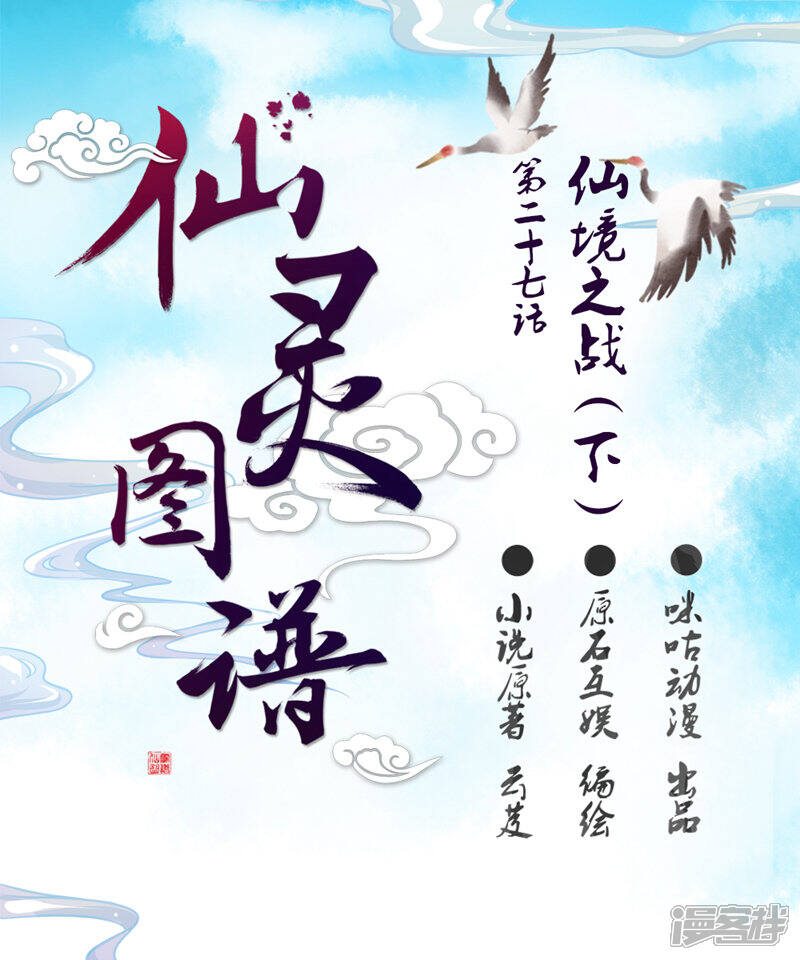 仙灵图谱
仙境之战（下）
第二十七话
咪咕动漫 出品
原石互娱 编绘
小说原著 云芨
漫客栈